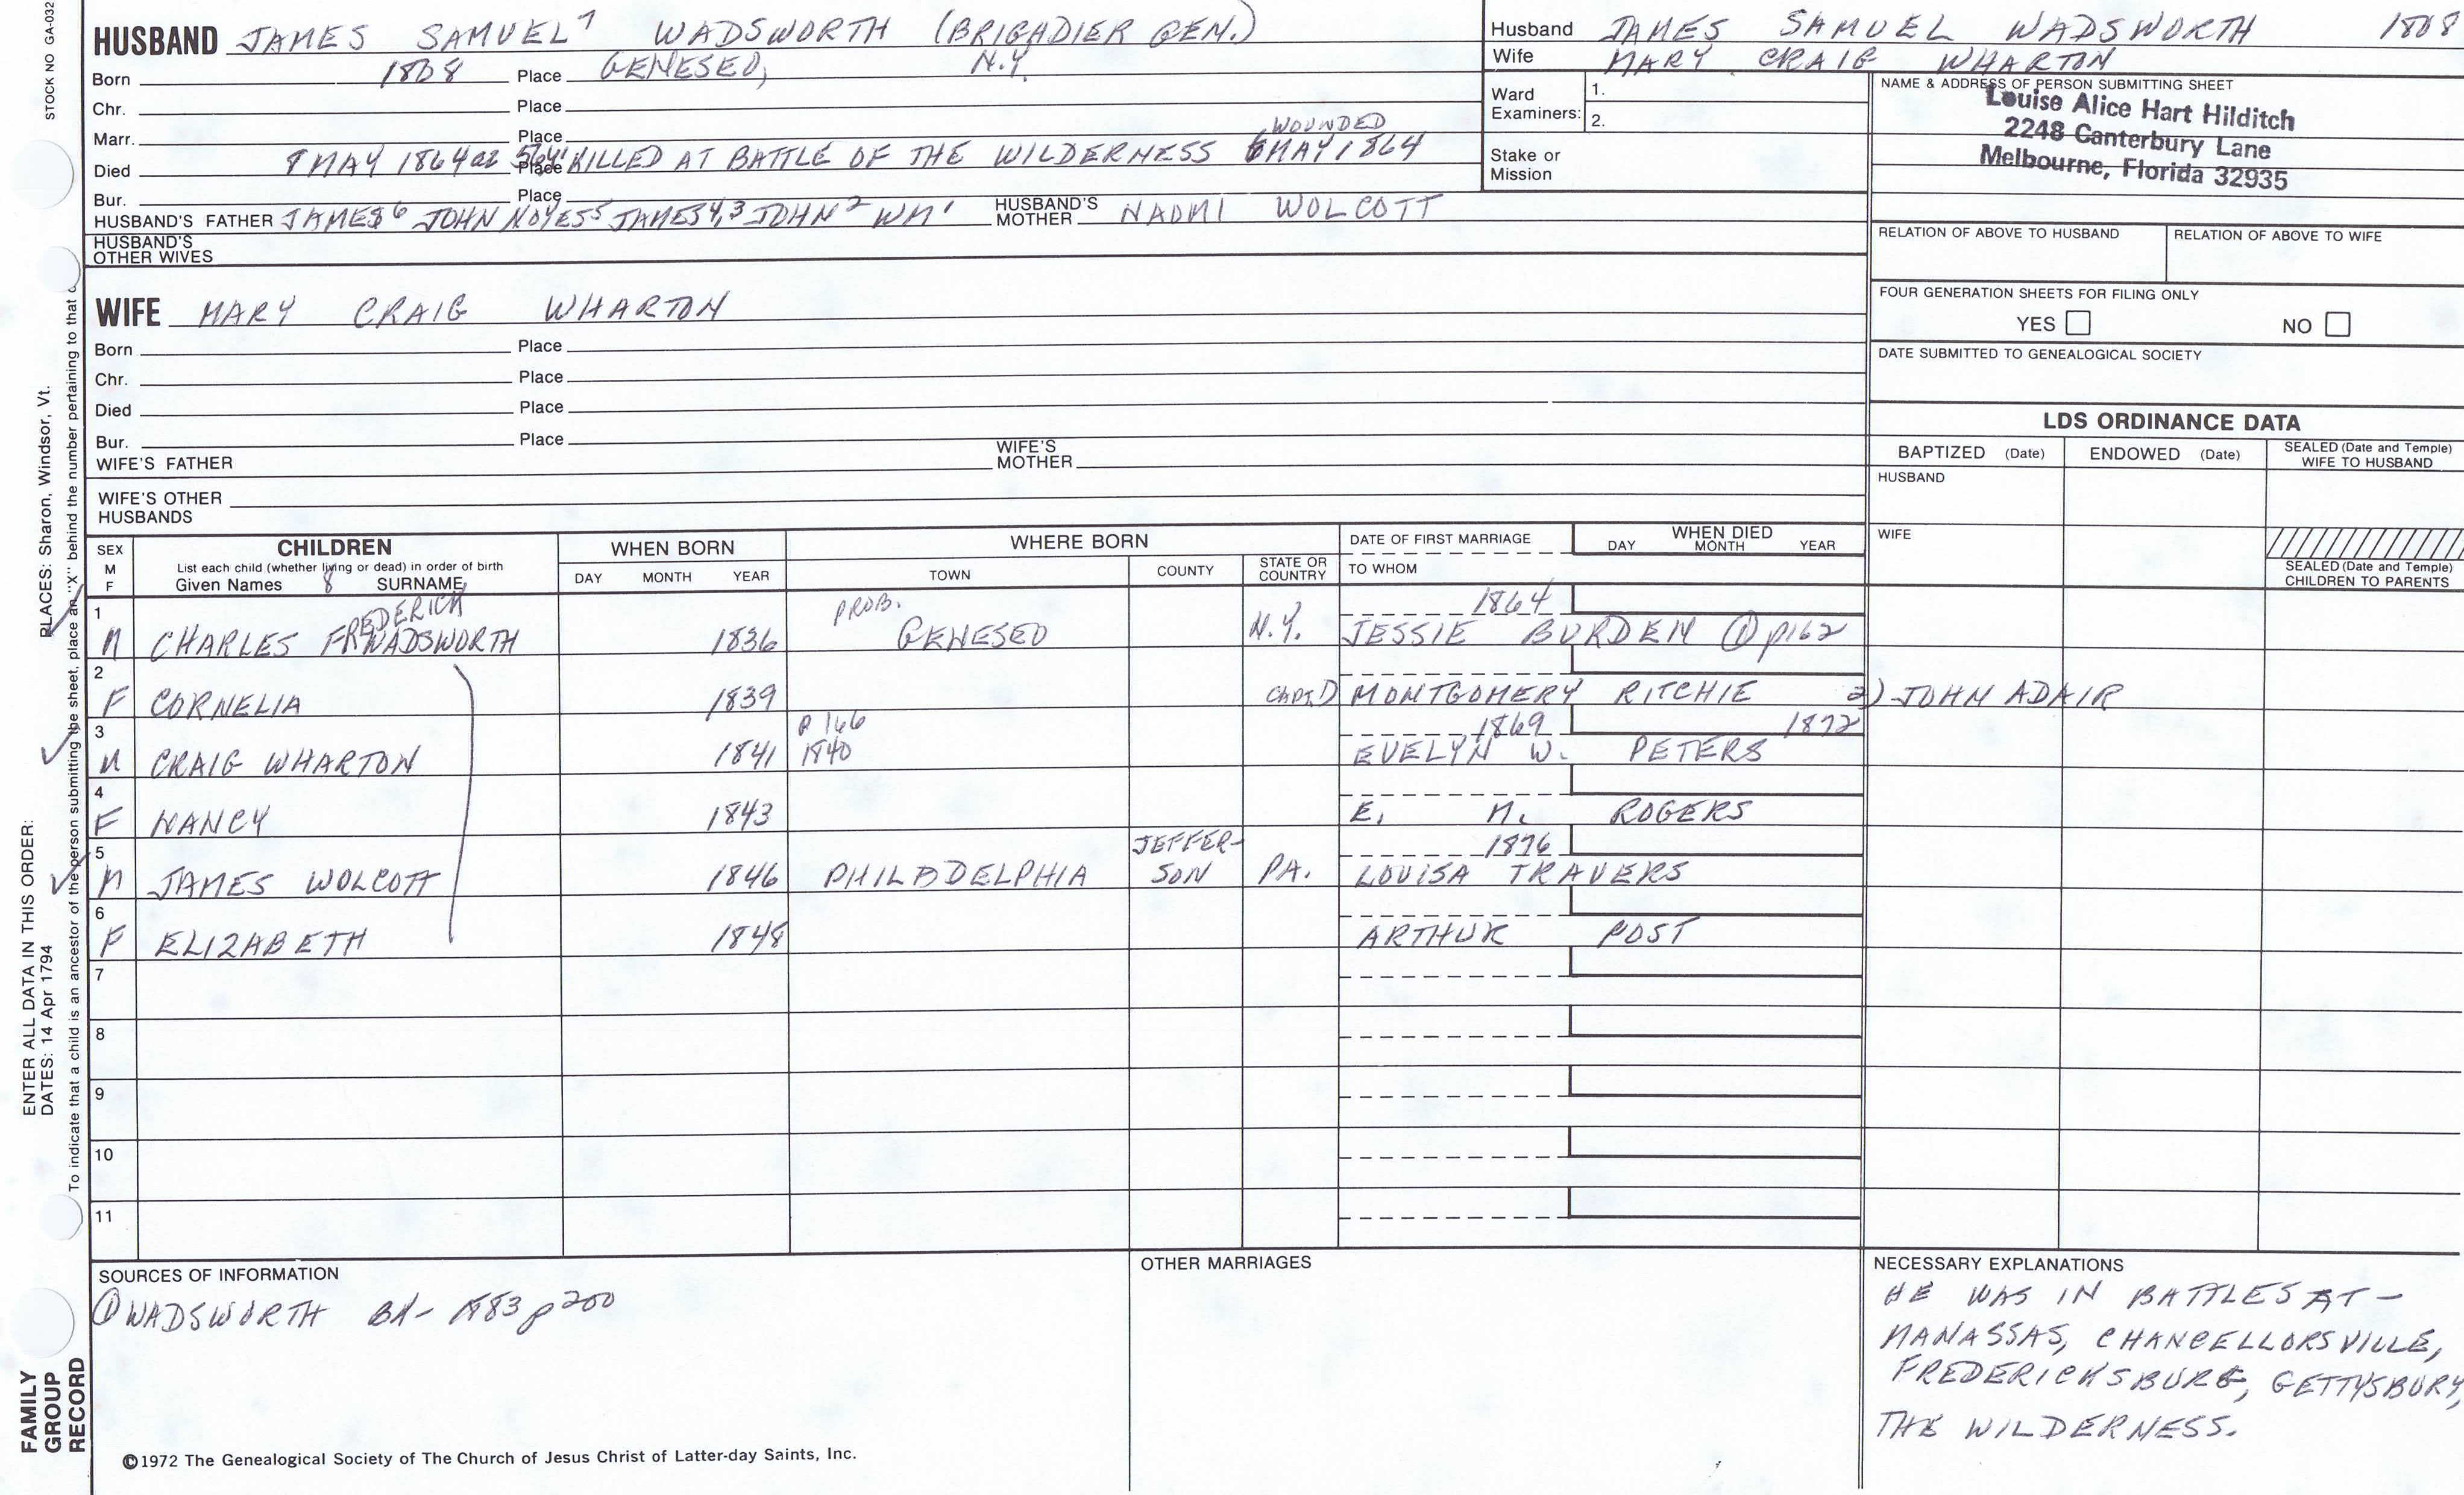 STOCK NO GA-032
HUSBAND JAMES SAMUEL⁷ WADSWORTH (BRIGADIER GEN.)
Born 1808 Place GENESEO, N.Y.
Chr. Place
Marr. Place
WOUNDED
Died 8 MAY 1864 Place KILLED AT BATTLE OF THE WILDERNESS 6 MAY 1864
Bur. Place
HUSBAND'S FATHER JAMES⁶ JOHN NOYES⁵ JAMES⁴,³ JOHN² WM¹ HUSBAND'S MOTHER NAOMI WOLCOTT
HUSBAND'S OTHER WIVES
Husband JAMES SAMUEL WADSWORTH 1808
Wife MARY CRAIG WHARTON
Ward Examiners: 1.
2.
Stake or Mission
NAME & ADDRESS OF PERSON SUBMITTING SHEET
Louise Alice Hart Hilditch
2248 Canterbury Lane
Melbourne, Florida 32935
RELATION OF ABOVE TO HUSBAND RELATION OF ABOVE TO WIFE
FOUR GENERATION SHEETS FOR FILING ONLY
YES NO
DATE SUBMITTED TO GENEALOGICAL SOCIETY
WIFE MARY CRAIG WHARTON
Born Place
Chr. Place
Died Place
Bur. Place
WIFE'S FATHER WIFE'S MOTHER
WIFE'S OTHER HUSBANDS
LDS ORDINANCE DATA
BAPTIZED (Date) ENDOWED (Date) SEALED (Date and Temple) WIFE TO HUSBAND
HUSBAND
WIFE
SEALED (Date and Temple) CHILDREN TO PARENTS
SEX M F
CHILDREN
List each child (whether living or dead) in order of birth
Given Names 8 SURNAME
WHEN BORN
DAY MONTH YEAR
WHERE BORN
TOWN COUNTY STATE OR COUNTRY
DATE OF FIRST MARRIAGE
TO WHOM
WHEN DIED
DAY MONTH YEAR
1 FREDERICK PROB. 1864
M CHARLES WADSWORTH 1836 GENESEO N.Y. JESSIE BURDEN ① p162
2
F CORNELIA 1839 MONTGOMERY RITCHIE 2) JOHN ADAIR
3 P 166 1869 1872
M CRAIG WHARTON 1841 1840 EVELYN W. PETERS
4
F NANCY 1843 E. M. ROGERS
5 JEFFER- 1876
M JAMES WOLCOTT 1846 PHILADELPHIA SON PA. LOUISA TRAVERS
6
F ELIZABETH 1848 ARTHUR POST
7
8
9
10
11
SOURCES OF INFORMATION
① WADSWORTH p200
OTHER MARRIAGES
NECESSARY EXPLANATIONS
HE WAS IN BATTLES AT -
MANASSAS, CHANCELLORSVILLE,
FREDERICKSBURG, GETTYSBURY,
THE WILDERNESS.
©1972 The Genealogical Society of The Church of Jesus Christ of Latter-day Saints, Inc.
ENTER ALL DATA IN THIS ORDER:
DATES: 14 Apr 1794 PLACES: Sharon, Windsor, Vt.
To indicate that a child is an ancestor of the person submitting the sheet, place an "X" behind the number pertaining to that
FAMILY GROUP RECORD